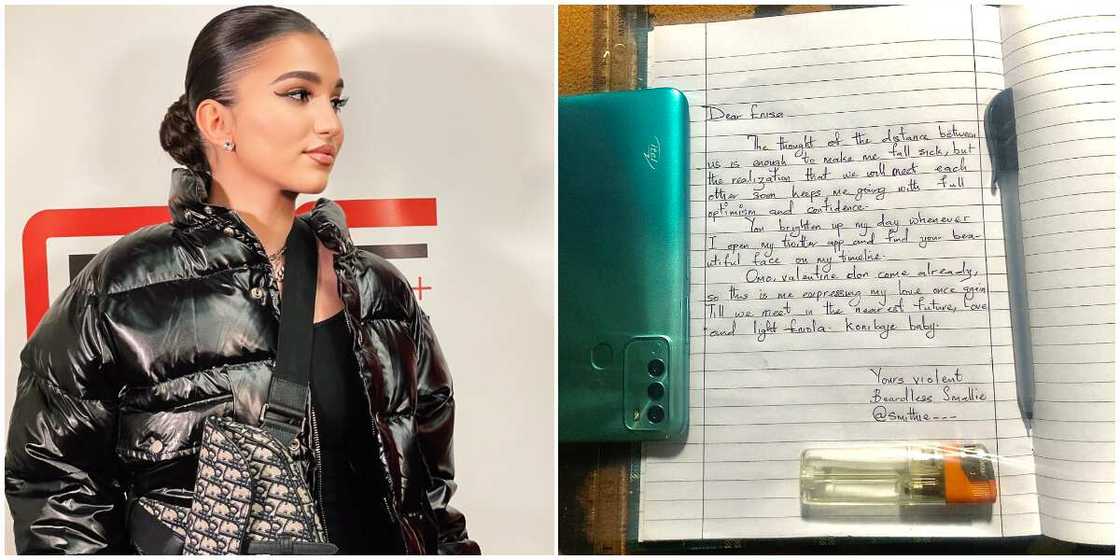 itel
Dear Enisa
The thought of the distance between
us is enough to make me fall sick, but
the realization that we will meet each
other soon keeps me going with full
optimism and confidence.
You brighten up my day whenever
I open my twitter app and find your bea-
utiful face on my timeline.
Omo, valentine don come already,
so this is me expressing my love once again
Till we meet in the nearest future, Love
and light Eniola. Konibaje baby.
Yours violent
Beardless Smallie
@smithie---